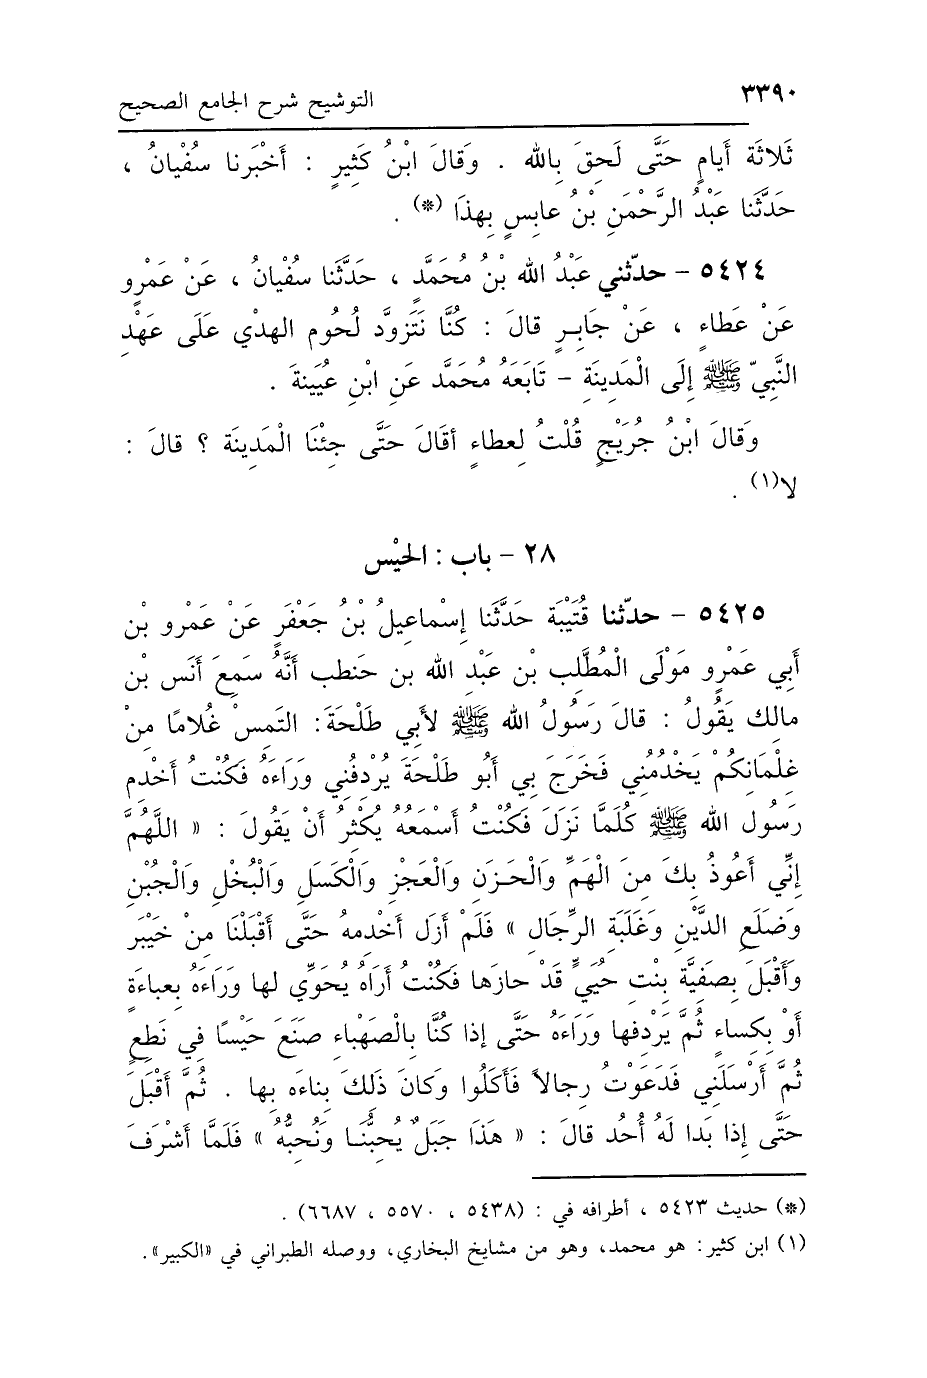 ٣٣٩٠ التوشيح شرح الجامع الصحيح
ثَلاثَة أَيامٍ حَتَّى لَحِقَ بِالله . وَقالَ ابْنُ كَثِيرٍ : أَخْبَرنا سُفْيانُ ،
حَدَّثَنا عَبْدُ الرَّحْمَنِ بْنُ عابِسٍ بِهذَا (*) .
٥٤٢٤ - حدّثني عَبْدُ الله بْنُ مُحَمَّدٍ ، حَدَّثَنا سُفْيانُ ، عَنْ عَمْرٍو
عَنْ عَطاءٍ ، عَنْ جَابِرٍ قالَ : كُنَّا نَتَزودَّ لُحُوم الهدْي عَلَى عَهْدِ
النَّبِيّ ﷺ إِلَى الْمَدِينَةِ - تابَعَهُ مُحَمَّد عَنِ ابْنِ عُيَينةَ .
وَقالَ ابْنُ جُرَيْجٍ قُلْتُ لِعطاءٍ أقَالَ حَتَّى جِئْنَا الْمَدِينَة ؟ قالَ :
لا(١) .
٢٨ - باب : الحَيْس
٥٤٢٥ - حدّثنا قُتَيْبَة حَدَّثَنا إِسْماعِيلُ بْنُ جَعْفَرٍ عَنْ عَمْرو بْن
أَبِي عَمْرٍو مَوْلَى الْمُطَّلِب بْن عَبْدِ الله بن حَنطب أَنَّهُ سَمِعَ أَنَس بْن
مالك يَقُولُ : قالَ رَسُولُ الله ﷺ لأَبِي طَلْحَةَ: التَمِسْ غُلامًا مِنْ
غِلْمَانِكُمْ يَخْدُمُنِي فَخَرَجَ بِي أَبُو طَلْحَةَ يُرْدِفُنِي وَرَاءَهُ فَكُنْتُ أَخْدِم
رَسُول الله ﷺ كُلَمَّا نَزَلَ فَكُنْتُ أَسْمَعُهُ يُكْثِرُ أَنْ يَقُولَ : « اللَّهُمَّ
إِنِّي أَعُوذُ بِكَ مِنَ الْهَمِّ وَالْحَزَنِ وَالْعَجْزِ وَالْكَسَلِ وَالْبُخْلِ وَالْجُبْنِ
وَضَلَعِ الدَّيْنِ وَغَلَبَةِ الرِّجَالِ » فَلَمْ أَزَل أَخْدِمهُ حَتَّى أَقْبَلْنَا مِنْ خَيْبَر
وَأَقْبَلَ بِصَفِيَّة بِنْت حُيَيٍّ قَدْ حازَها فَكُنْتُ أَراهُ يُحَوِّي لها وَرَاءَهُ بِعباءَةٍ
أَوْ بِكِساءٍ ثُمَّ يَرْدِفها وَرَاءَهُ حَتَّى إذا كُنَّا بِالْصَهْباءِ صَنَعَ حَيْسًا فِي نَطِعٍ
ثُمَّ أَرْسَلَنِي فَدَعَوْتُ رِجالاً فَأَكَلُوا وَكانَ ذَلِكَ بِناءَه بِها . ثُمَّ أَقْبَلَ
حَتَّى إذا بَدا لَهُ أُحُد قالَ : « هَذَا جَبَلٌ يُحِبُّنَا وَنُحِبُّهُ » فَلَمَّا أَشْرَفَ
(*) حديث ٥٤٢٣ ، أطرافه في : (٥٤٣٨ ، ٥٥٧٠ ، ٦٦٨٧) .
(١) ابن كثير: هو محمد، وهو من مشايخ البخاري، ووصله الطبراني في «الكبير».